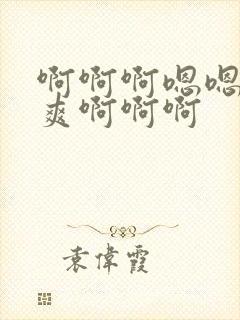 啊啊啊嗯嗯
爽啊啊啊
袁偉霞